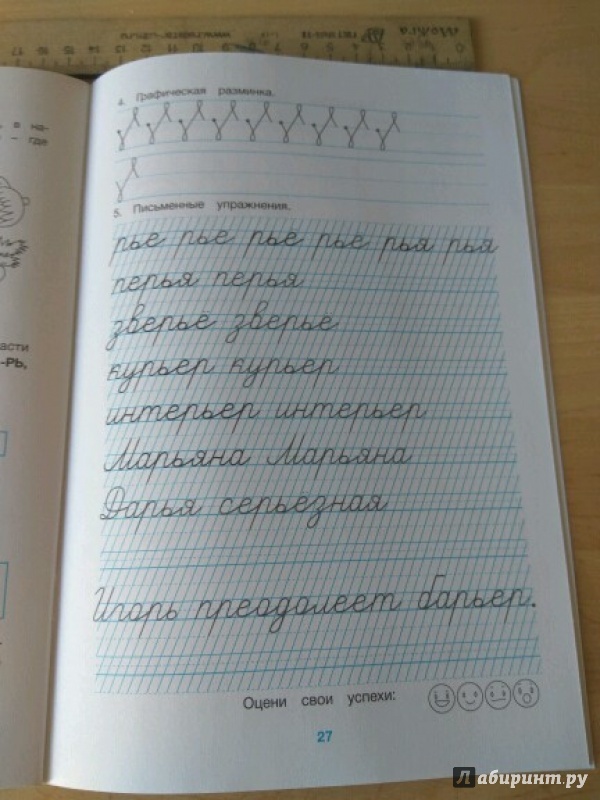 4. Графическая разминка.
5. Письменные упражнения.
рье рье рье рье рья рья
перья перья
зверье зверье
курьер курьер
интерьер интерьер
Марьяна Марьяна
Дарья серьезная
Игорь преодолеет барьер.
Оцени свои успехи:
27
в на-
– где
асти
-РЬ,
Лабиринт.ру